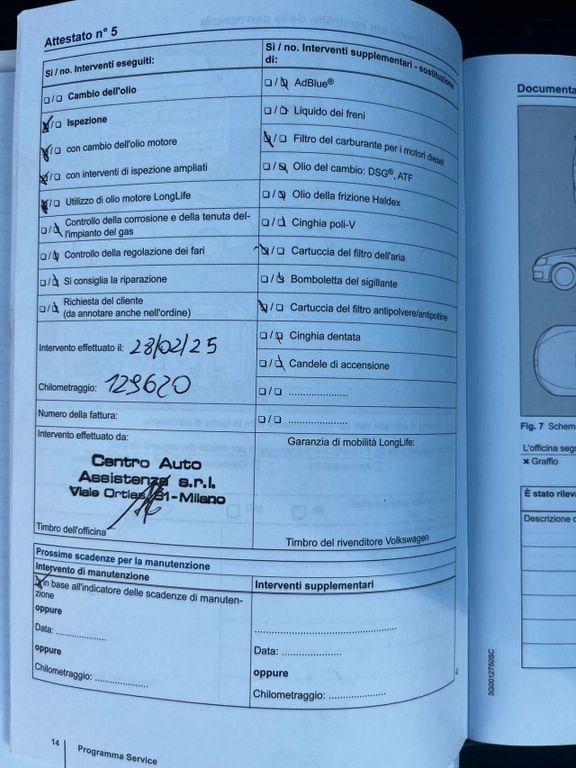 Attestato n° 5
Sì / no. Interventi eseguiti:
Sì / no. Interventi supplementari - sostituzione di:
☐ / ☐ Cambio dell'olio
☐ / ☐ AdBlue®
☒ / ☐ Ispezione
☐ / ☒ Liquido dei freni
☒ / ☐ con cambio dell'olio motore
☒ / ☐ Filtro del carburante per i motori diesel
☒ / ☐ con interventi di ispezione ampliati
☐ / ☒ Olio del cambio: DSG®, ATF
☒ / ☐ Utilizzo di olio motore LongLife
☐ / ☒ Olio della frizione Haldex
☐ / ☒ Controllo della corrosione e della tenuta del-
l'impianto del gas
☐ / ☒ Cinghia poli-V
☐ / ☒ Controllo della regolazione dei fari
☒ / ☐ Cartuccia del filtro dell'aria
☐ / ☒ Si consiglia la riparazione
☐ / ☒ Bomboletta del sigillante
☐ / ☒ Richiesta del cliente
(da annotare anche nell'ordine)
☒ / ☐ Cartuccia del filtro antipolvere/antipolline
Intervento effettuato il: 28/02/25
☐ / ☒ Cinghia dentata
☐ / ☒ Candele di accensione
Chilometraggio: 129620
☐ / ☐ .....................
Numero della fattura:
☐ / ☐ .....................
Intervento effettuato da:
Garanzia di mobilità LongLife:
Centro Auto
Assistenza s.r.l.
Viale Ortles, 81-Milano
Timbro dell'officina
Timbro del rivenditore Volkswagen
Prossime scadenze per la manutenzione
Intervento di manutenzione
Interventi supplementari
in base all'indicatore delle scadenze di manuten-
zione
oppure
Data: ..................
oppure
Chilometraggio: ...................
..................................................
Data: .....................
oppure
Chilometraggio: .....................
14
Programma Service
Documenta
Fig. 7 Schem
L'officina seg
✖ Graffio
È stato rileva
Descrizione d
3G0012750SC